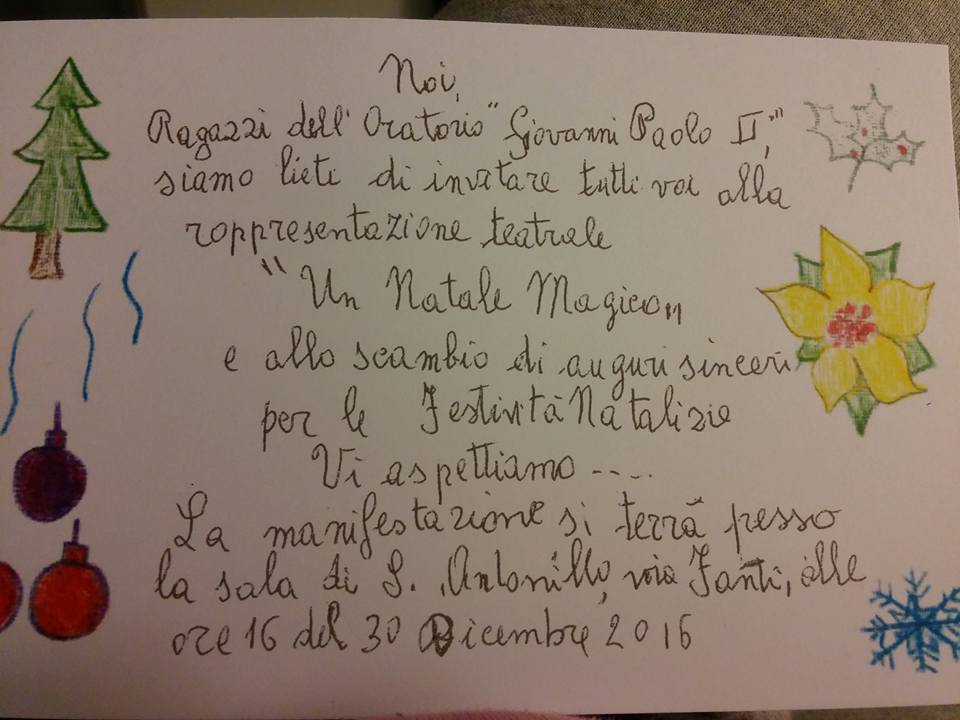 Noi,
Ragazzi dell'Oratorio "Giovanni Paolo II",
siamo lieti di invitare tutti voi alla
roppresentazione teatrale
"Un Natale Magico"
e allo scambio di auguri sinceri
per le Festività Natalizie
Vi aspettiamo ----.
La manifestazione si terrà presso
la sala di S. Antonillo, via Fanti, alle
ore 16 del 30 Dicembre 2016